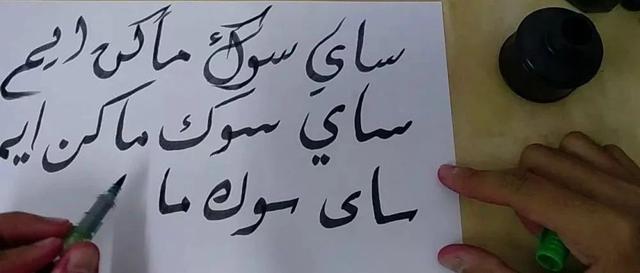 ساي سوك ماكن ايم
ساي سوك ماكن ايم
ساى سوك ما